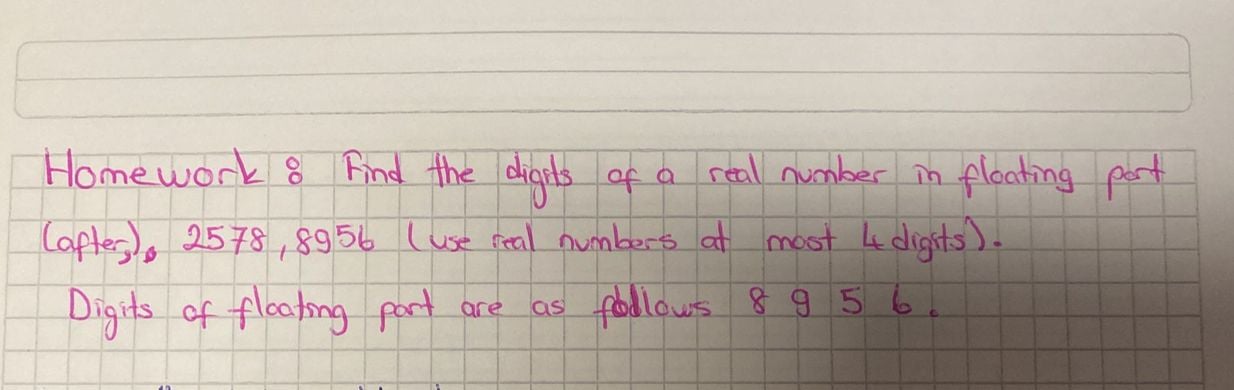 Homework : Find the digits of a real number in floating part
(after,). 2578,8956 (use real numbers at most 4 digits).
Digits of floating part are as follows 8 9 5 6.